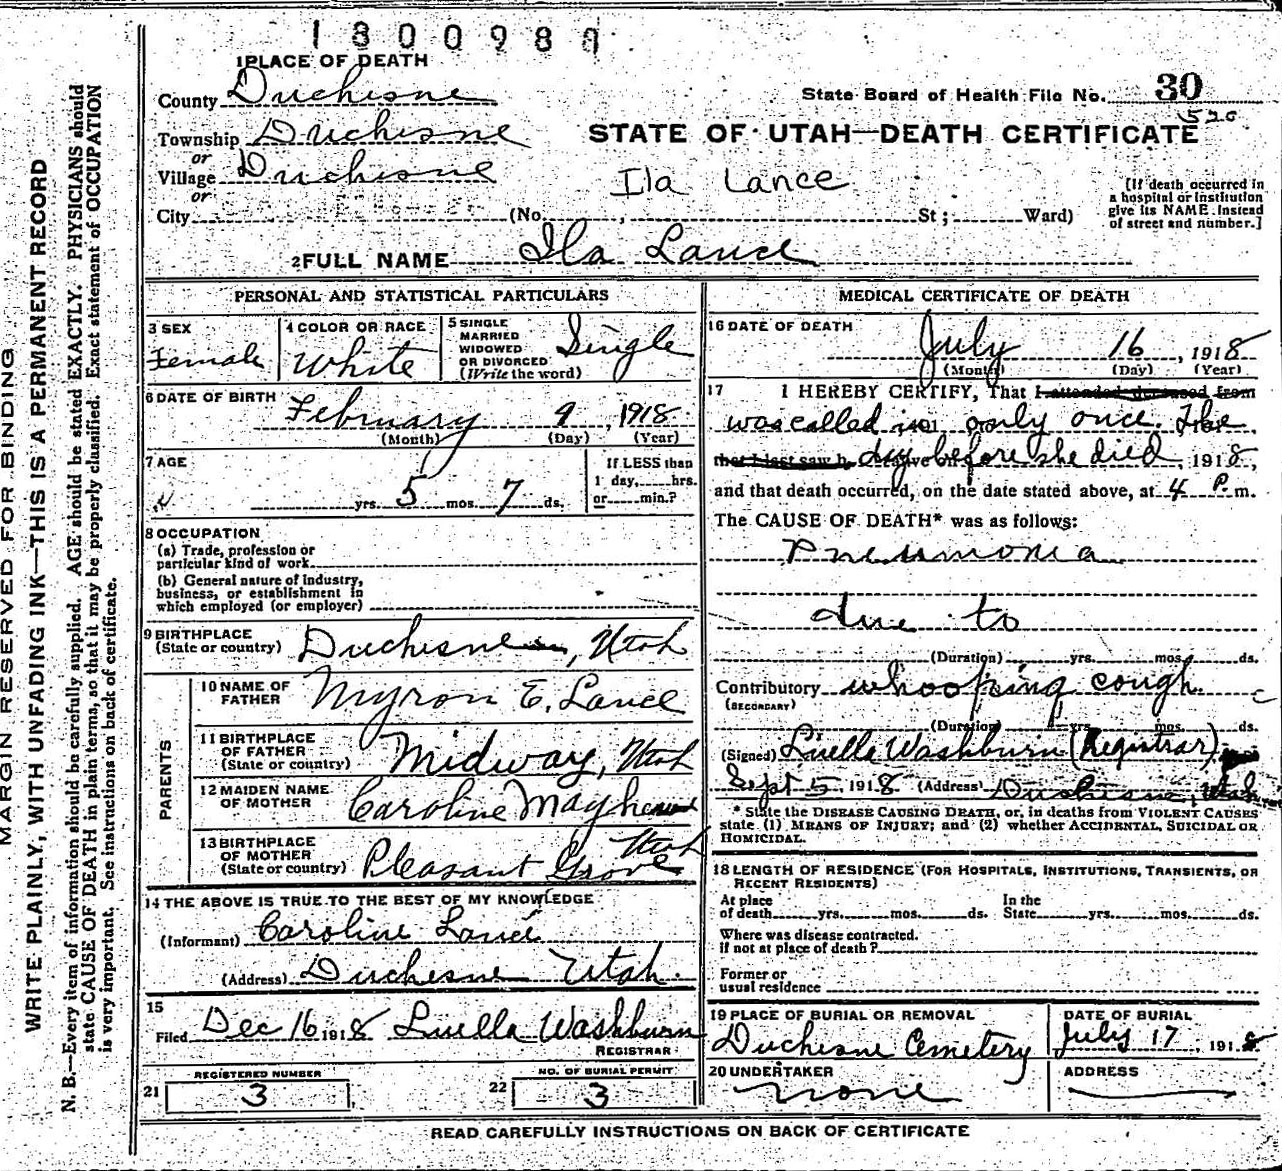 1800989
1 PLACE OF DEATH
County Duchesne
State Board of Health File No. 30
520
Township Duchesne
STATE OF UTAH—DEATH CERTIFICATE
or
Village Duchesne
Ila Lance
or
City (No. , St; Ward)
[If death occurred in
a hospital or institution
give its NAME instead
of street and number.]
2 FULL NAME Ila Lance
PERSONAL AND STATISTICAL PARTICULARS
3 SEX
Female
4 COLOR OR RACE
White
5 SINGLE
MARRIED
WIDOWED
OR DIVORCED
(Write the word)
Single
6 DATE OF BIRTH
February 9, 1918
(Month) (Day) (Year)
7 AGE
yrs. 5 mos. 7 ds.
If LESS than
1 day, hrs.
or min.?
8 OCCUPATION
(a) Trade, profession or
particular kind of work
(b) General nature of industry,
business, or establishment in
which employed (or employer)
9 BIRTHPLACE
(State or country) Duchesne, Utah
PARENTS
10 NAME OF
FATHER Myron E. Lance
11 BIRTHPLACE
OF FATHER
(State or country) Midway, Utah
12 MAIDEN NAME
OF MOTHER Caroline Mayhew
13 BIRTHPLACE
OF MOTHER
(State or country) Pleasant Grove Utah
14 THE ABOVE IS TRUE TO THE BEST OF MY KNOWLEDGE
(Informant) Caroline Lance
(Address) Duchesne Utah.
15
Filed Dec 16 1918 Luella Washburn
REGISTRAR
21 REGISTERED NUMBER
3
22 NO. OF BURIAL PERMIT
3
MEDICAL CERTIFICATE OF DEATH
16 DATE OF DEATH
July 16, 1918
(Month) (Day) (Year)
17 I HEREBY CERTIFY, That I attended deceased from
was called in only once. The
that I last saw h day before she died, 1918,
and that death occurred, on the date stated above, at 4 P. m.
The CAUSE OF DEATH* was as follows:
Pneumonia
due to
(Duration) yrs. mos. ds.
Contributory whooping cough.
(SECONDARY)
(Duration) yrs. mos. ds.
(Signed) Luella Washburn (Registrar)
Sept 5, 1918 (Address) Duchesne, Utah
* State the DISEASE CAUSING DEATH, or, in deaths from VIOLENT CAUSES
state (1) MEANS OF INJURY; and (2) whether ACCIDENTAL, SUICIDAL OR
HOMICIDAL.
18 LENGTH OF RESIDENCE (FOR HOSPITALS, INSTITUTIONS, TRANSIENTS, OR
RECENT RESIDENTS)
At place
of death yrs. mos. ds.
In the
State yrs. mos. ds.
Where was disease contracted.
if not at place of death?
Former or
usual residence
19 PLACE OF BURIAL OR REMOVAL
Duchesne Cemetery
DATE OF BURIAL
July 17, 1918
20 UNDERTAKER
none
ADDRESS
READ CAREFULLY INSTRUCTIONS ON BACK OF CERTIFICATE
MARGIN RESERVED FOR BINDING
WRITE PLAINLY, WITH UNFADING INK—THIS IS A PERMANENT RECORD
N. B.—Every item of information should be carefully supplied. AGE should be stated EXACTLY. PHYSICIANS should
state CAUSE OF DEATH in plain terms, so that it may be properly classified. Exact statement of OCCUPATION
is very important. See instructions on back of certificate.